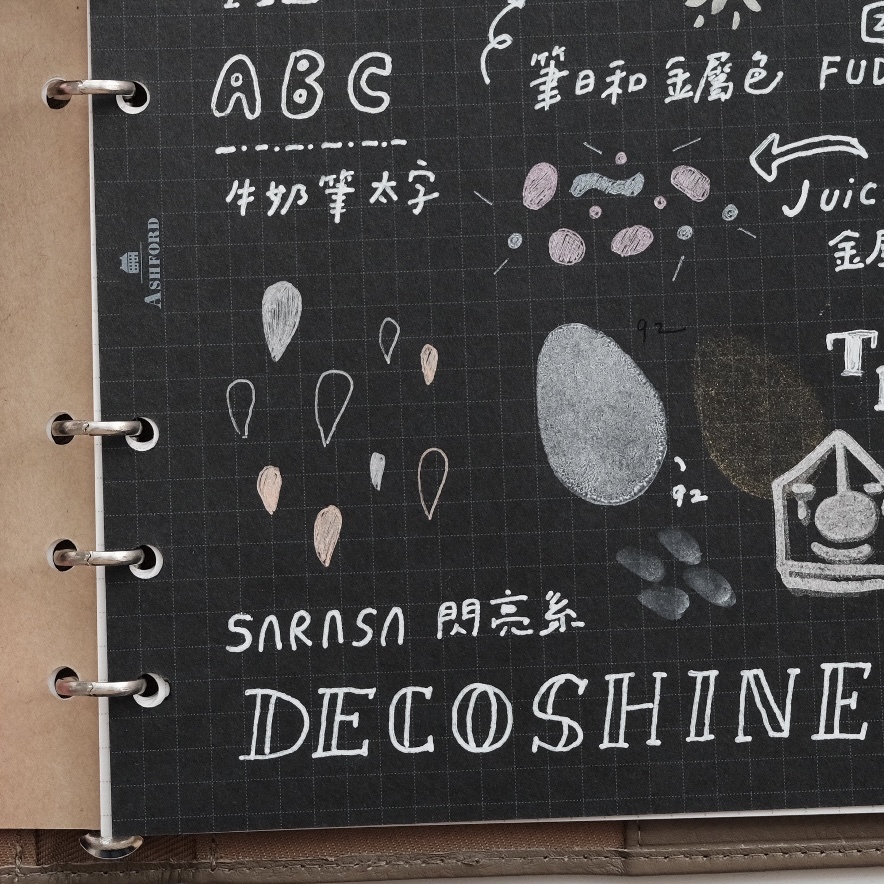 ABC
筆日和 金屬色
FUD
牛奶筆 太字
Juic
金屬
ASHFORD
92
T
92
SARASA 閃亮系
DECOSHINE